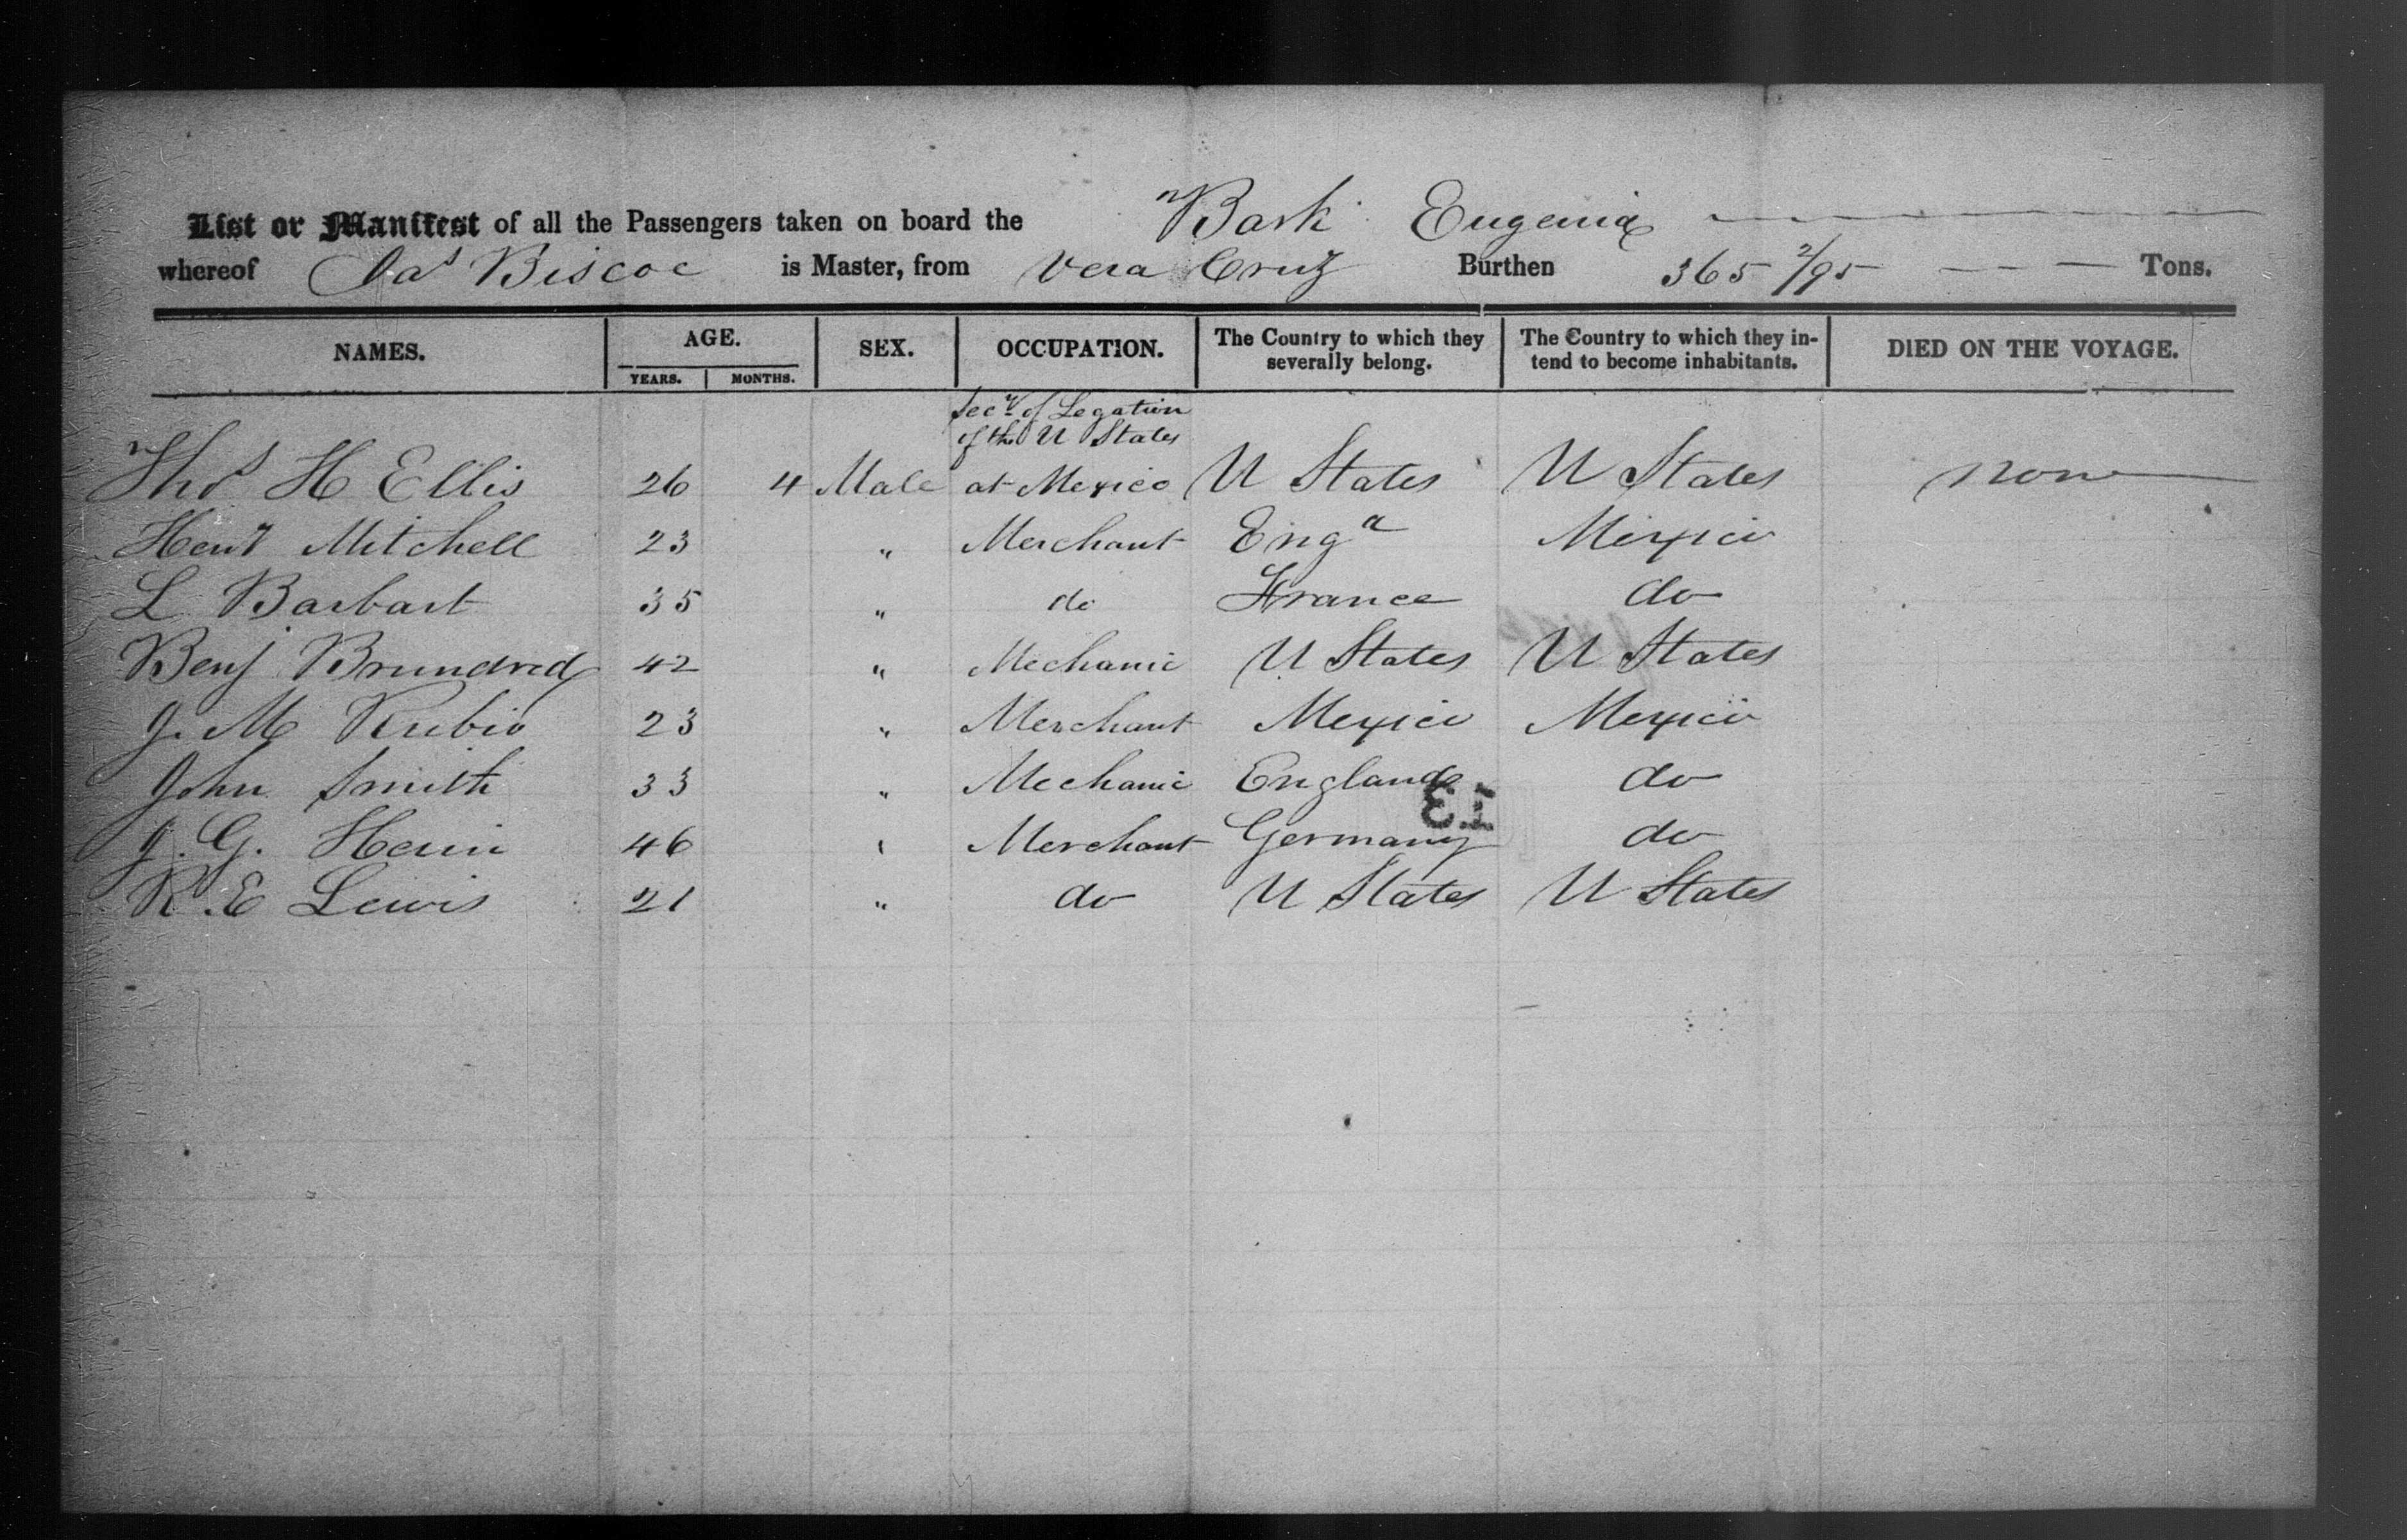 List or Manifest of all the Passengers taken on board the Bark Eugenia
whereof Jas Biscoe is Master, from Vera Cruz Burthen 365 2/95 Tons.
NAMES. AGE. YEARS. MONTHS. SEX. OCCUPATION. The Country to which they severally belong. The Country to which they intend to become inhabitants. DIED ON THE VOYAGE.
Secy of Legation
of the U States
Thos H Ellis 26 4 Male at Mexico U States U States none
Heny Mitchell 23 " Merchant Engd Mexico
L Barbart 35 " do France do
Benj Brundred 42 " Mechanic U States U States
J. M Rubio 23 " Merchant Mexico Mexico
John Smith 33 " Mechanic England do
J. G. 46 " Merchant Germany do
R. E Lewis 21 " do U States U States